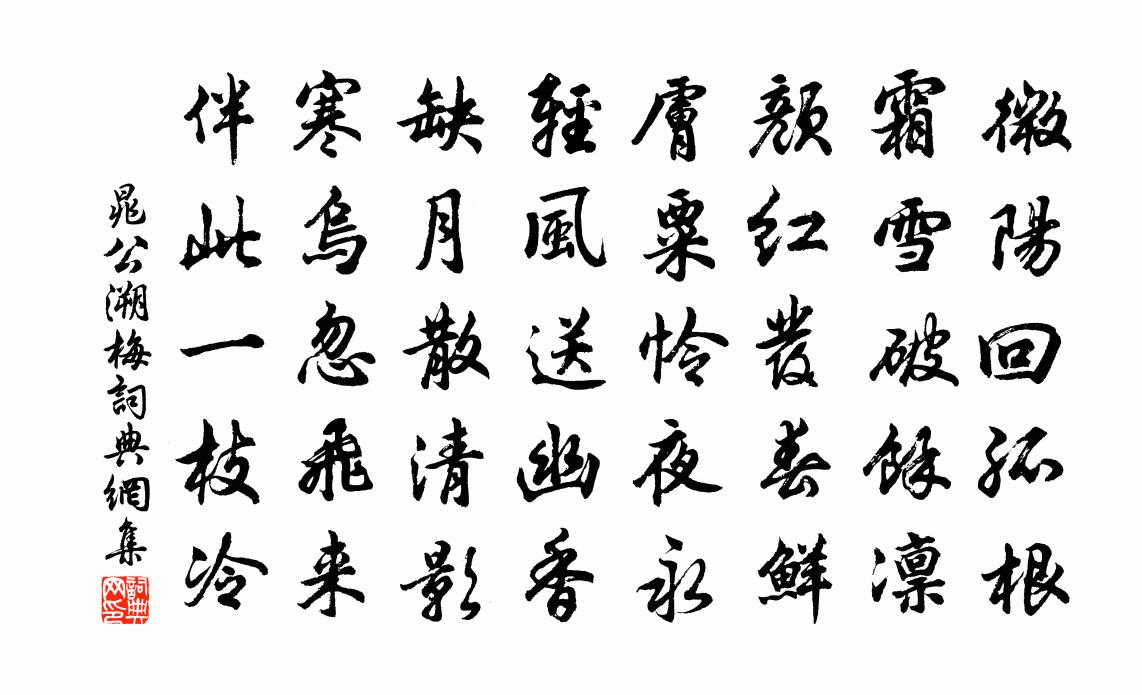 微陽回孤根
霜雪破餘凛
顔紅發春鮮
膚粟怜夜永
輕風送幽香
缺月散清影
寒烏忽飛来
伴此一枝冷
晁公溯梅詞典網集
詞典網印